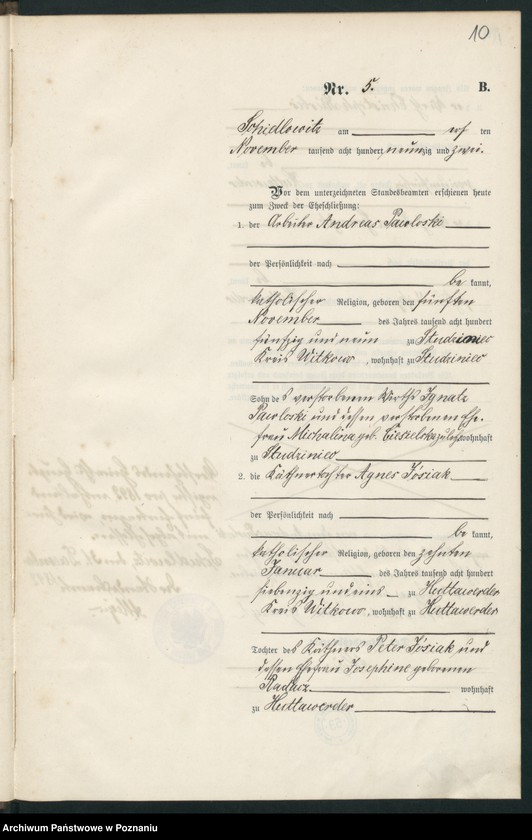 10
Nr. 5. B.
Schidlowitz am elf ten
November tausend acht hundert neunzig und zwei.
Vor dem unterzeichneten Standesbeamten erschienen heute
zum Zweck der Eheschließung:
1. der Arbeiter Andreas Pawloski
der Persönlichkeit nach
be kannt,
katholischer Religion, geboren den fünften
November des Jahres tausend acht hundert
fünfzig und neun zu Studzinieo
Kreis Witkowo, wohnhaft zu Studzinieo
Sohn des verstorbenen Wirths Ignatz
Pawloski und dessen verstorbenen Ehe-
frau Michalina geb. zuletzt wohnhaft
zu Studzinieo
2. die Käthnertochter Agnes Josiak
der Persönlichkeit nach
be kannt,
katholischer Religion, geboren den zehnten
Januar des Jahres tausend acht hundert
siebenzig und eins zu Huttawerder
Kreis Witkowo, wohnhaft zu Huttawerder
Tochter des Käthners Peter Josiak und
dessen Ehefrau Josephine geborenen
Radacz wohnhaft
zu Huttawerder
Archiwum Państwowe w Poznaniu